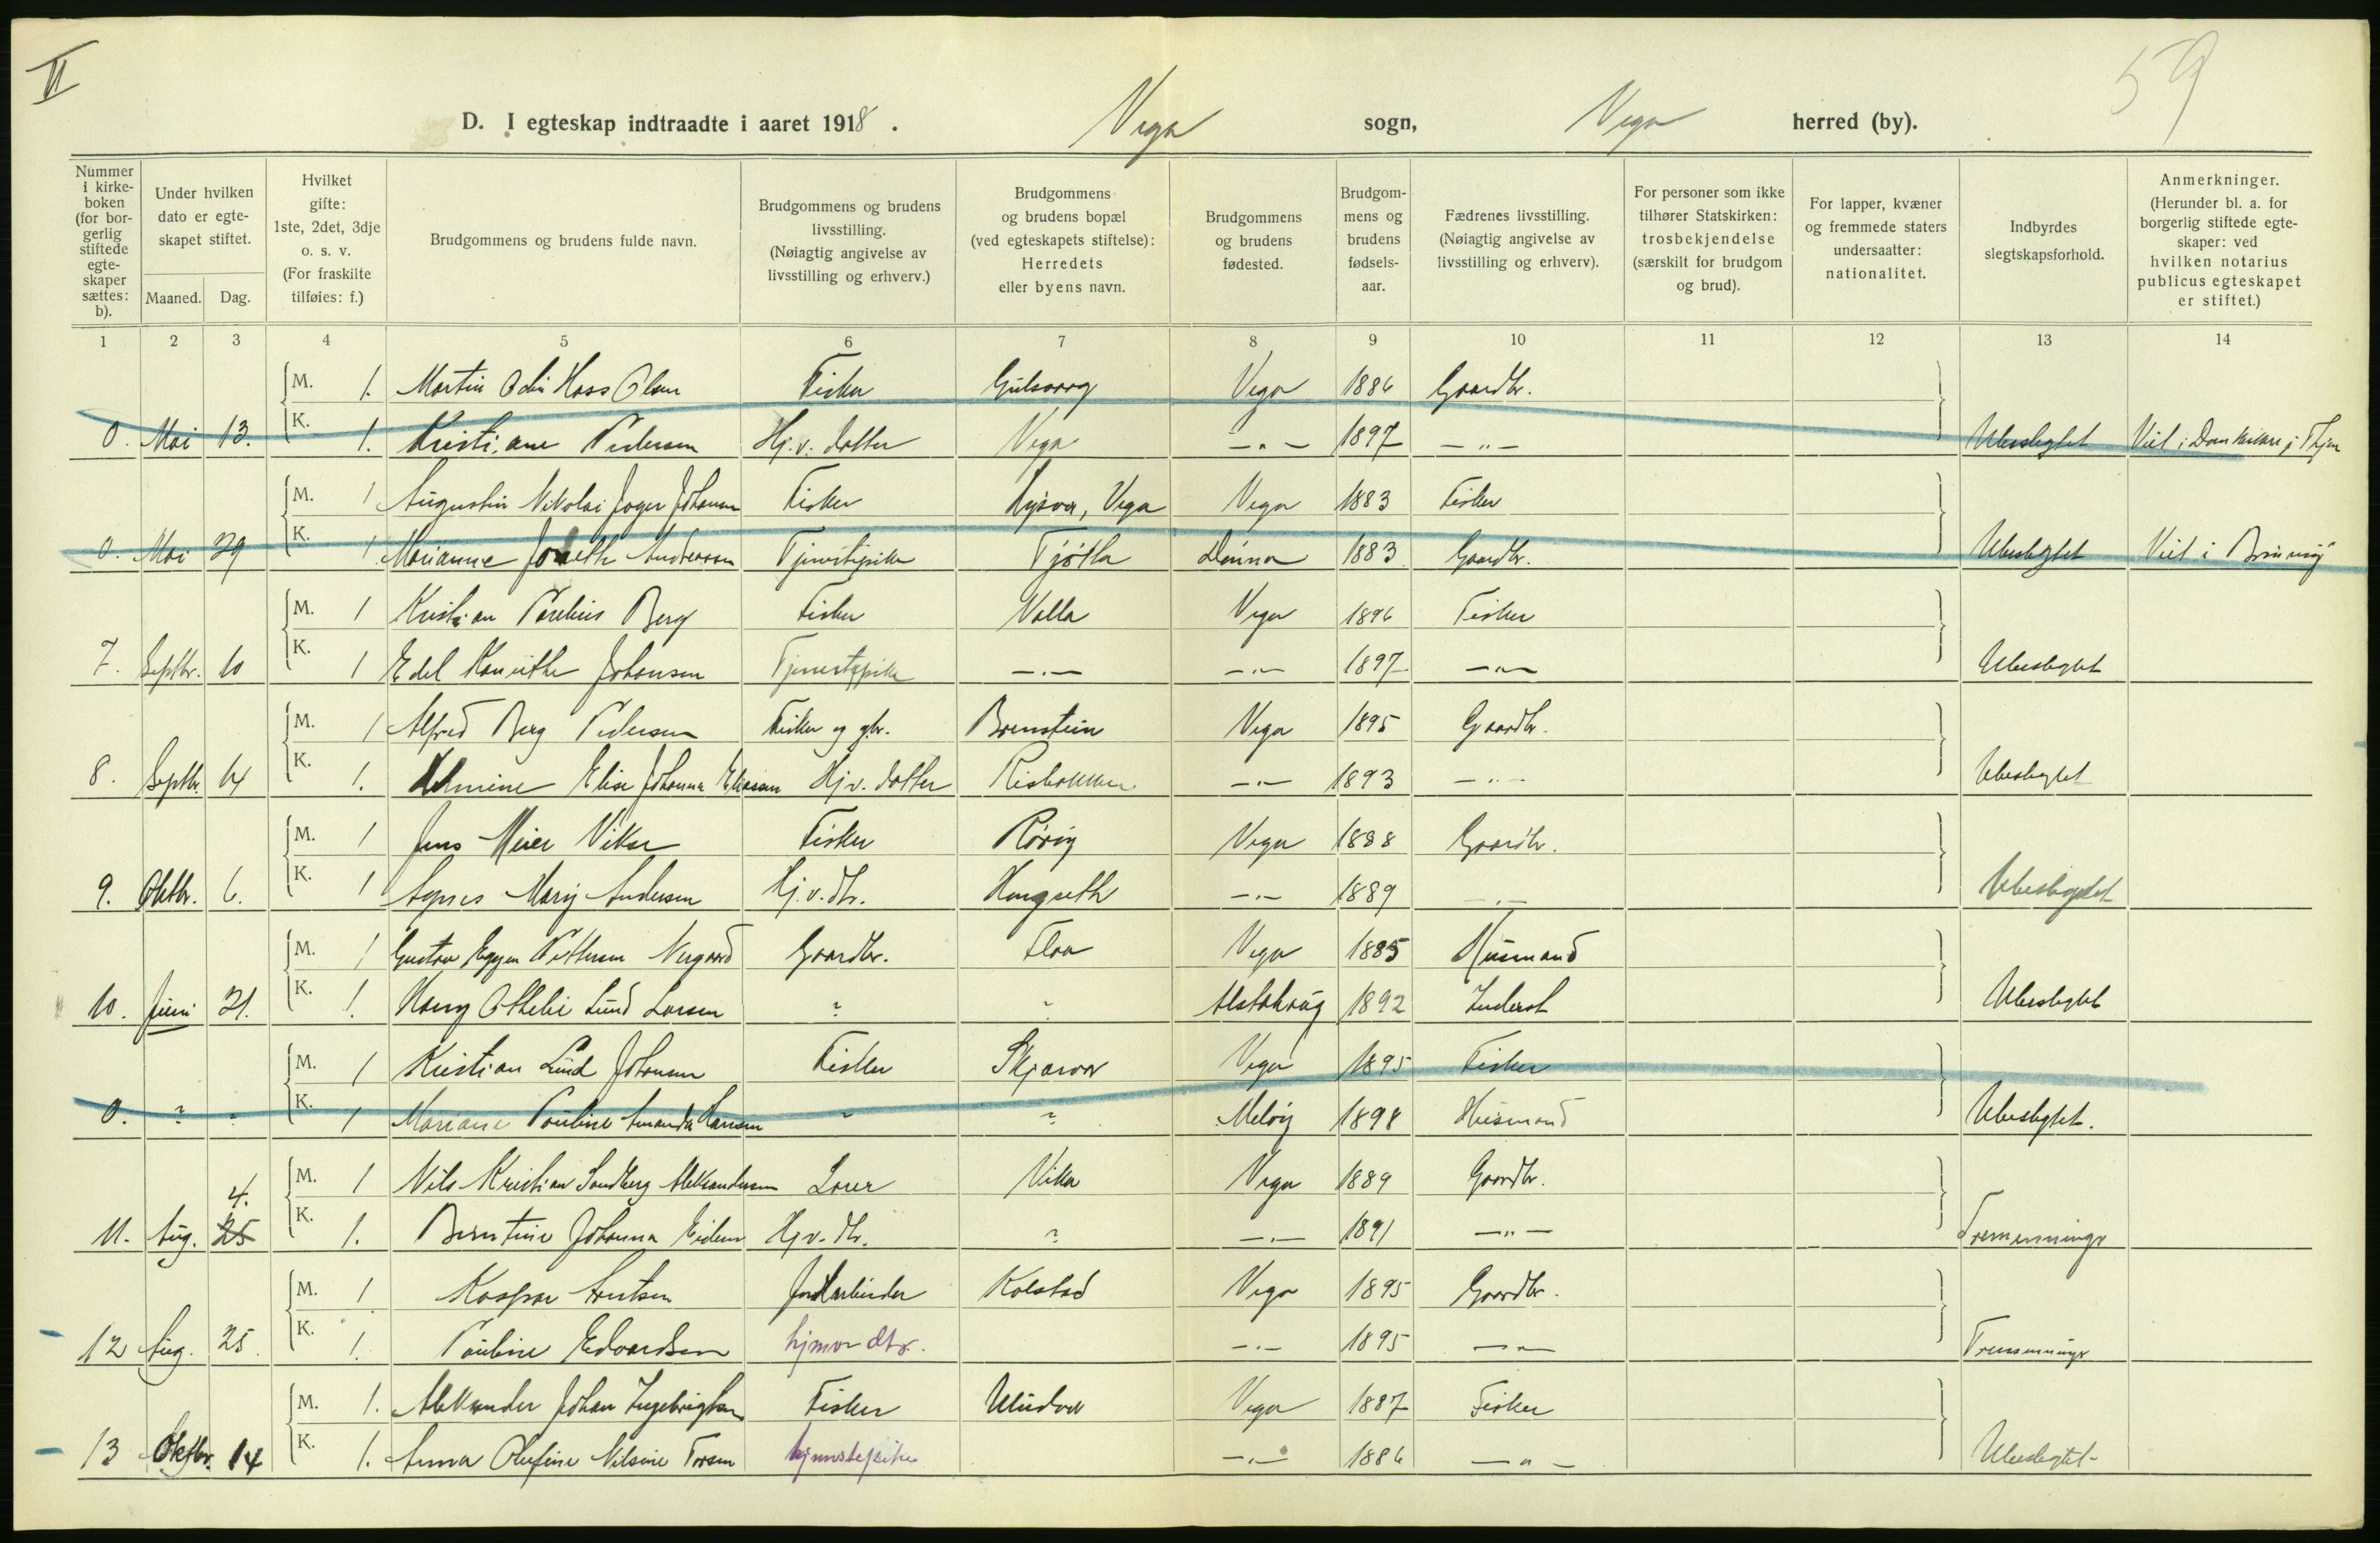 II
59
D. I egteskap indtraadte i aaret 1918. Vega sogn, Vega herred (by).
Nummer i kirkeboken (for borgerlig stiftede egteskaper sættes: b).
Under hvilken dato er egteskapet stiftet.
Maaned. Dag.
Hvilket gifte: 1ste, 2det, 3dje o. s. v. (For fraskilte tilføies: f.)
Brudgommens og brudens fulde navn.
Brudgommens og brudens livsstilling. (Nøiagtig angivelse av livsstilling og erhverv.)
Brudgommens og brudens bopæl (ved egteskapets stiftelse): Herredets eller byens navn.
Brudgommens og brudens fødested.
Brudgommens og brudens fødselsaar.
Fædrenes livsstilling. (Nøiagtig angivelse av livsstilling og erhverv).
For personer som ikke tilhører Statskirken: trosbekjendelse (særskilt for brudgom og brud).
For lapper, kvæner og fremmede staters undersaatter: nationalitet.
Indbyrdes slegtskapsforhold.
Anmerkninger. (Herunder bl. a. for borgerlig stiftede egteskaper: ved hvilken notarius publicus egteskapet er stiftet.)
1 2 3 4 5 6 7 8 9 10 11 12 13 14
M. 1. Martin Odin Hass Olsen Fisker Gulsvaag Vega 1886 Gaardbr.
0. Mai 13. K. 1. Kristiane Pedersen Hj. v. datter Vega —„— 1897 —„— Ubeslegtet Viet i Domkirken i Thjem
M. 1 Augustin Nikolai Jager Johansen Fisker Vega Vega 1883 Fisker
0. Mai 29 K. 1 Marianne Andersen Tjenestepike Tjøtta Dønna 1883 Gaardbr. Ubeslegtet Viet i Brønnøy
M. 1 Kristian Parelius Berg Fisker Valla Vega 1896 Fisker
7. Septbr. 10 K. 1 Edel Johansen Tjenestepike —„— —„— 1897 —„— Ubeslegtet
M. 1 Alfred Berg Pedersen Fisker og gbr. Brenstein Vega 1895 Gaardbr.
8. Septbr. 14 K. 1. Elise Johanna Eliassen Hj v. datter —„— 1893 —„— Ubeslegtet
M. 1 Jens Meier Vikse Fisker Rørøy Vega 1888 Gaardbr.
9. Oktbr. 6. K. 1 Agnes Mary Andersen Hj. v. dtr. —„— 1889 —„— Ubeslegtet
M. 1 Gustav Eggen Pettersen Nergaard Gaardbr. Floa Vega 1885 Husmand
10. Juni 21. K. 1. Othelie Lund Larsen „ „ Alstahaug 1892 Inderst Ubeslegtet
M. 1 Kristian Lund Johansen Fisker Skjærvær Vega 1895 Fisker
0. „ „ K. 1 Mariane Pauline Amanda Hansen „ „ Meløy 1898 Husmand Ubeslegtet.
M. 1 Nils Kristian Sandberg Aleksandersen Lærer Vika Vega 1889 Gaardbr.
11. Aug. 25 4. K. 1. Berntine Johanna Eidem Hj v. dtr. „ —„— 1891 —„— Tremenninge
M. 1 Kaspar Arntsen Jordarbeider Kolstad Vega 1895 Gaardbr.
12 Aug. 25. K. 1. Pauline Edvardsen hjmv dtr. —„— 1895 —„— Tremenninge
M. 1. Aleksander Johan Ingebrigtsen Fisker Vega 1887 Fisker
13 Oktbr. 14 K. 1. Anna Olufine Nilsine Torsen tjenestepike —„— 1886 —„— Ubeslegtet